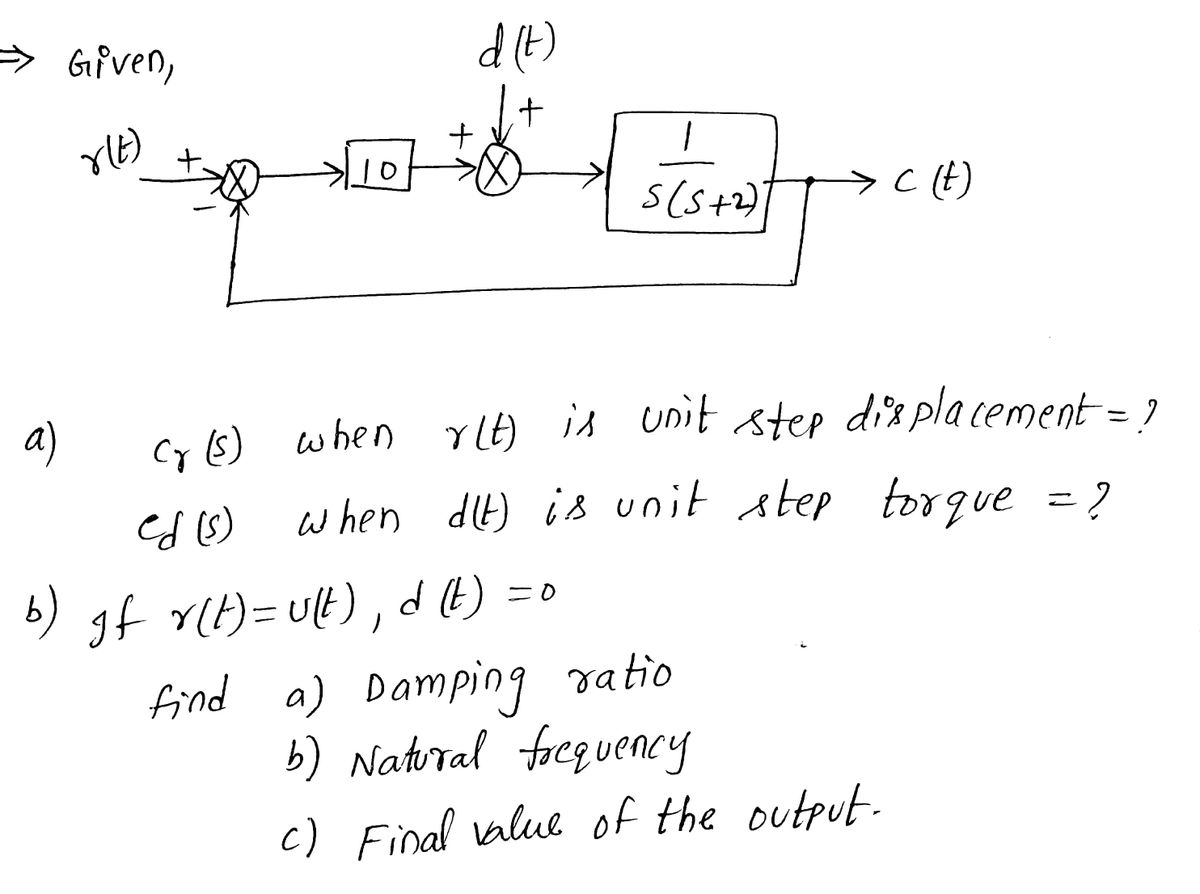 ⇒ Given,
d(t)
+
r(t) + + 
10
1
s(s+2)
c(t)
−
a) Cr(s) when r(t) is unit step displacement = ?
Cd(s) when d(t) is unit step torque = ?
b) If r(t) = u(t), d(t) = 0
find a) Damping ratio
b) Natural frequency
c) Final value of the output.